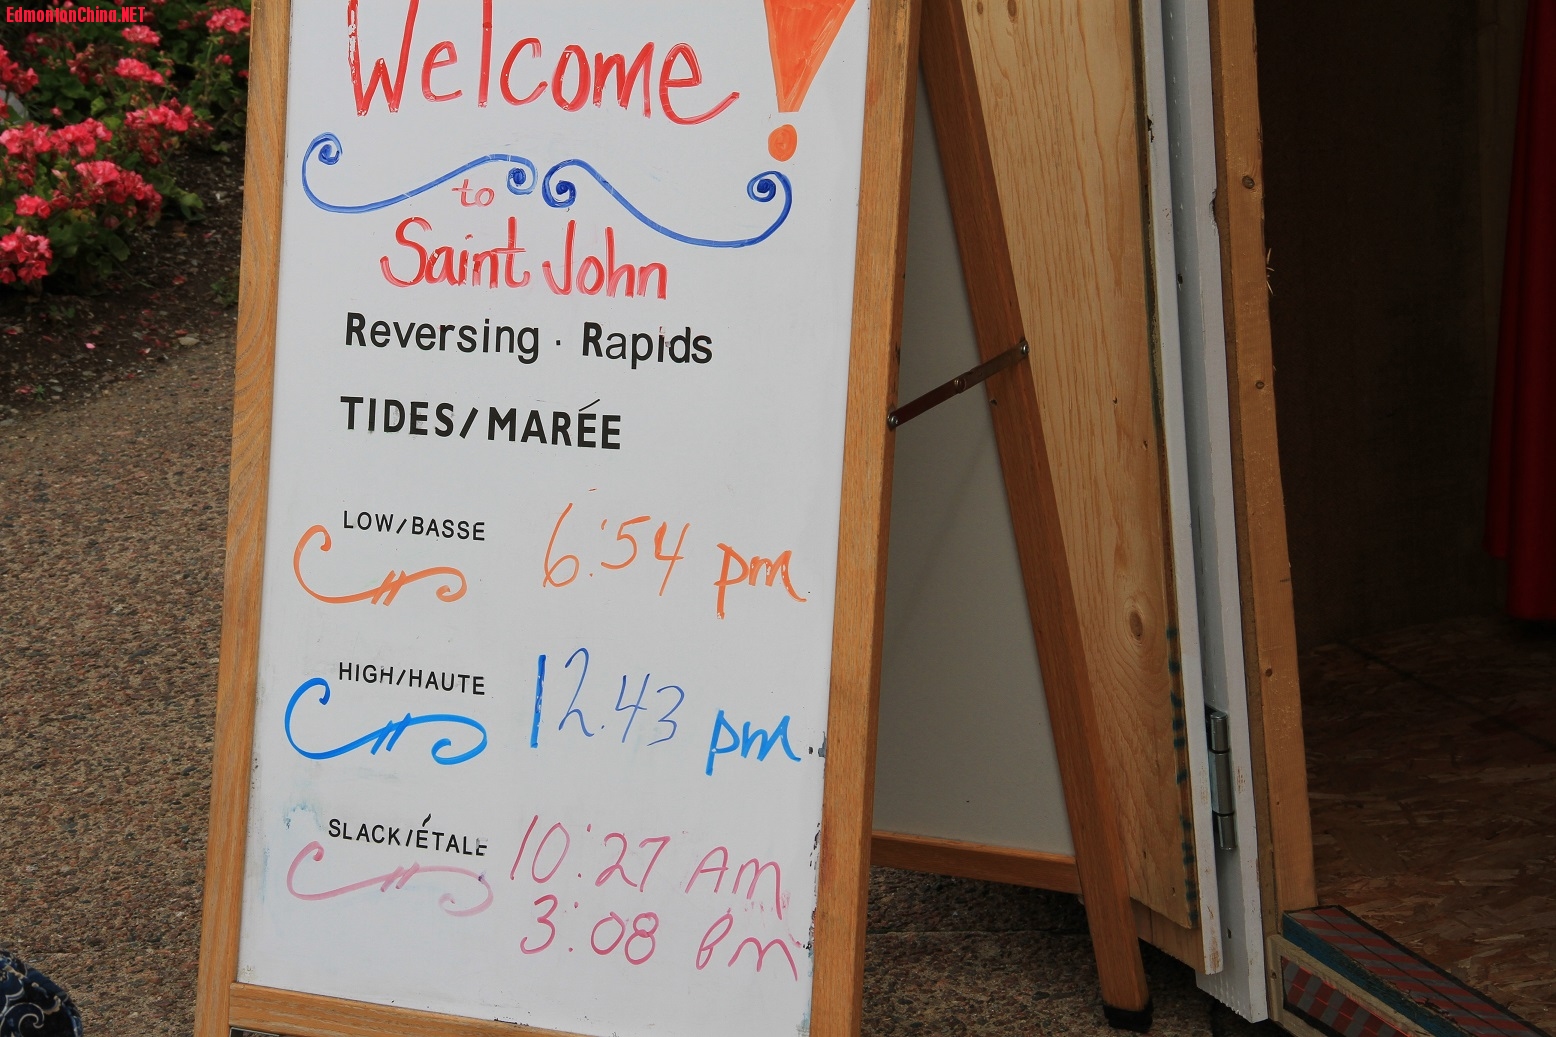 EdmontonChina.NET
Welcome!
to
Saint John
Reversing · Rapids
TIDES/MARÉE
LOW/BASSE 6:54 pm
HIGH/HAUTE 12:43 pm
SLACK/ÉTALE 10:27 AM
3:08 Pm